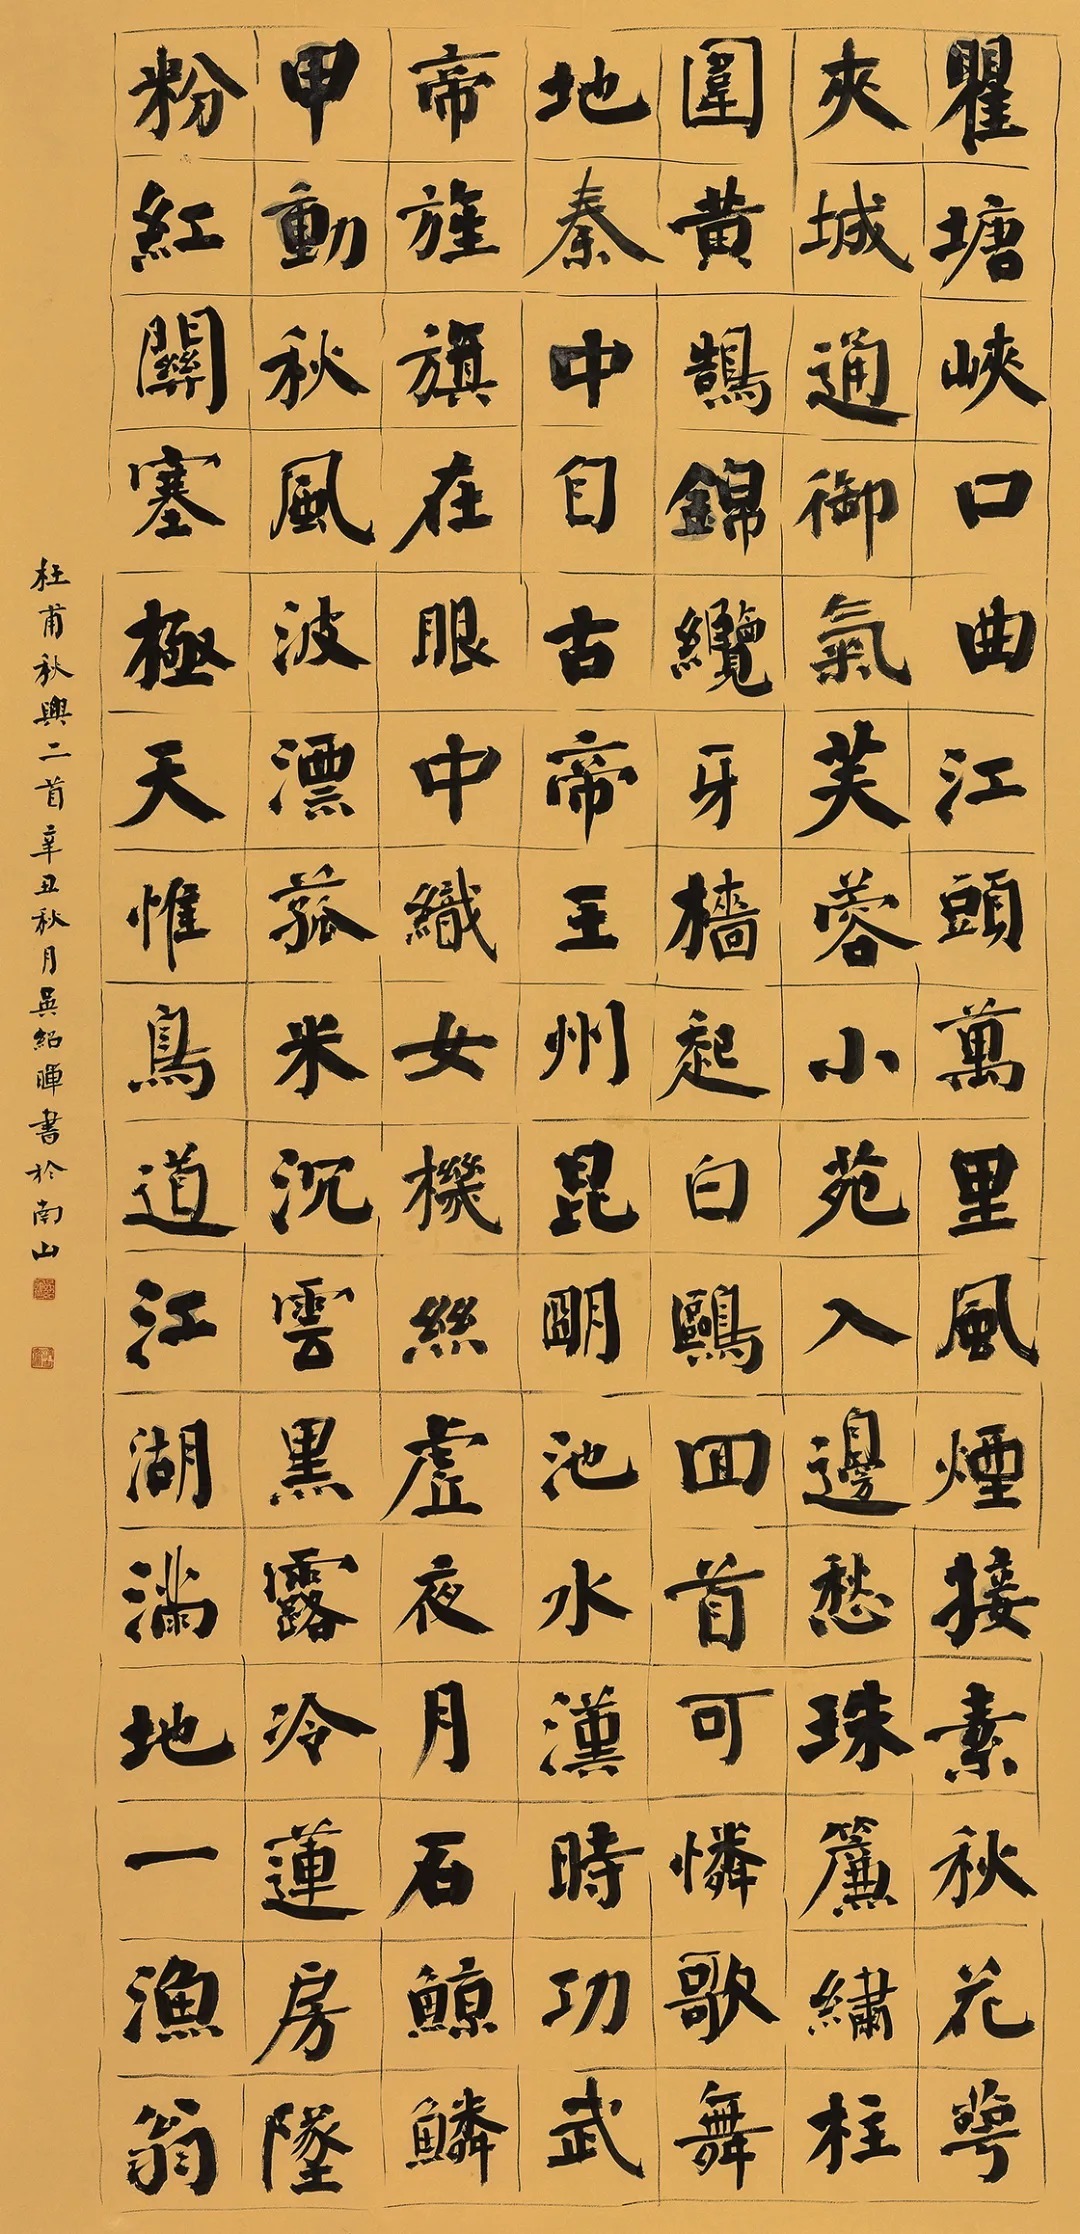 瞿塘峽口曲江頭萬里風煙接素秋花萼
夾城通御氣芙蓉小苑入邊愁珠簾繡柱
圍黃鵠錦纜牙檣起白鷗回首可憐歌舞
地秦中自古帝王州昆明池水漢時功武
帝旌旗在眼中織女機絲虛夜月石鯨鱗
甲動秋風波漂菰米沉雲黑露冷蓮房墜
粉紅關塞極天惟鳥道江湖滿地一漁翁
杜甫秋興二首辛丑秋月吳紹暉書於南山